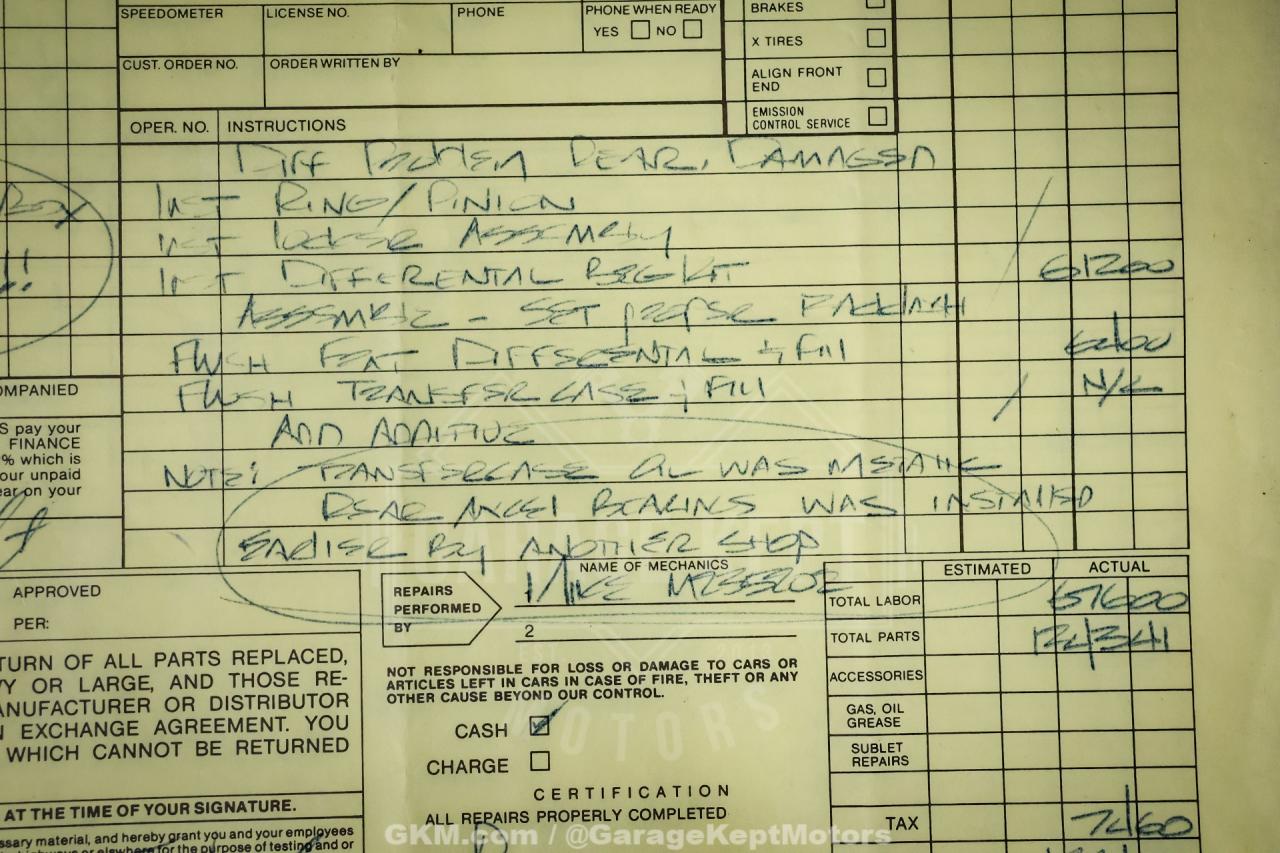 SPEEDOMETER LICENSE NO. PHONE PHONE WHEN READY
YES NO
BRAKES
X TIRES
CUST. ORDER NO. ORDER WRITTEN BY
ALIGN FRONT
END
EMISSION
CONTROL SERVICE
OPER. NO. INSTRUCTIONS
DIFF PROBLEM REAR, DAMAGED
INST RING/PINION
BOX
INST locker ASSEMBLY
INST DIFFERENTAL BRG KIT 61200
!!
ASSEMBLE - SET proper
FLUSH FRNT DIFFERENTIAL & Fill
FLUSH TRANSFER CASE & FILL N/C
OMPANIED
AND ADDITIVE
S pay your
FINANCE
% which is
our unpaid
ear on your
NOTE: TRANSFERCASE OIL WAS METALIC
REAR BEARINS WAS INSTALLED
EARLIER By ANOTHER SHOP
NAME OF MECHANICS
REPAIRS
PERFORMED
BY
1 MIKE
2
ESTIMATED ACTUAL
TOTAL LABOR 67600
TOTAL PARTS 124341
ACCESSORIES
GAS, OIL
GREASE
SUBLET
REPAIRS
TAX 7460
APPROVED
PER:
TURN OF ALL PARTS REPLACED,
VY OR LARGE, AND THOSE RE-
ANUFACTURER OR DISTRIBUTOR
N EXCHANGE AGREEMENT. YOU
WHICH CANNOT BE RETURNED
AT THE TIME OF YOUR SIGNATURE.
ssary material, and hereby grant you and your employees
highways or elsewhere for the purpose of testing and or
NOT RESPONSIBLE FOR LOSS OR DAMAGE TO CARS OR
ARTICLES LEFT IN CARS IN CASE OF FIRE, THEFT OR ANY
OTHER CAUSE BEYOND OUR CONTROL.
CASH
CHARGE
CERTIFICATION
ALL REPAIRS PROPERLY COMPLETED
MOTORS
GKM.com / @GarageKeptMotors